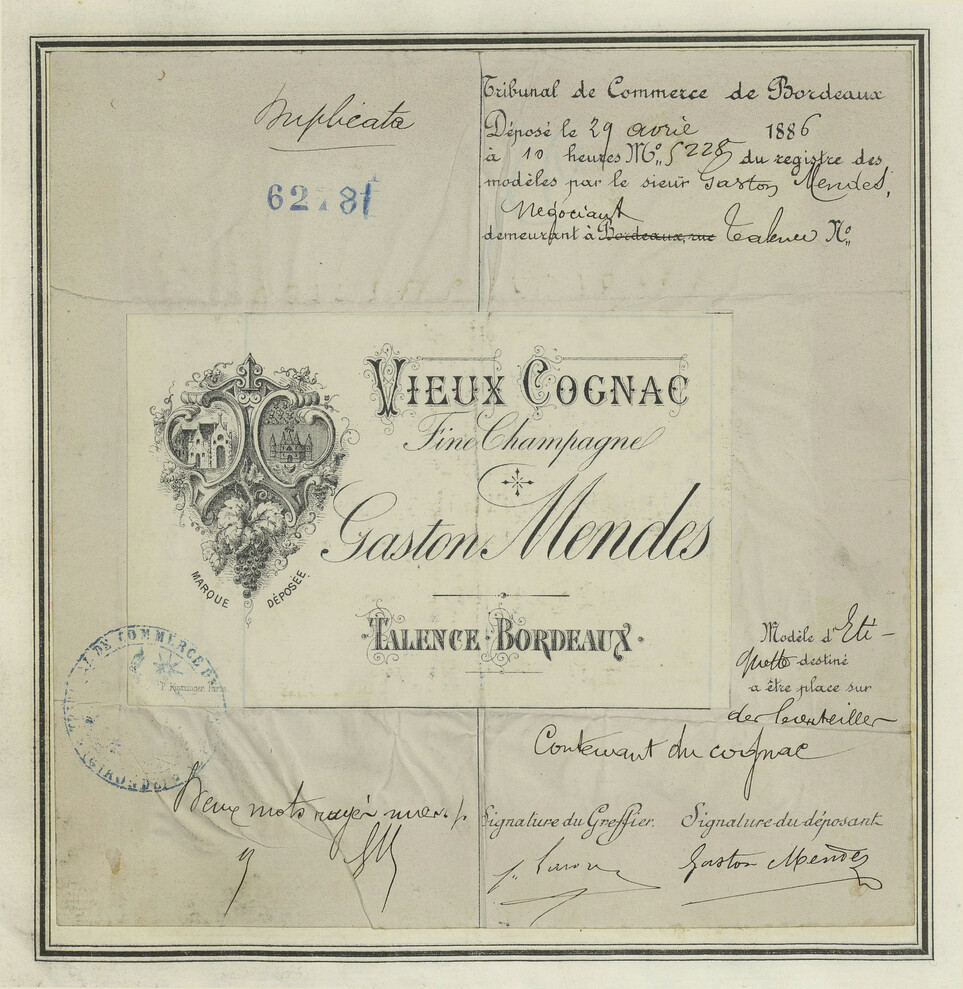 Duplicata
Tribunal de Commerce de Bordeaux
Déposé le 29 avril 1886
à 10 heures Nº 5228 du registre des
modèles par le sieur Gaston Mendes,
Négociant
demeurant à Bordeaux, rue Talence Nº
VIEUX COGNAC
Fine Champagne
Gaston Mendes
MARQUE DÉPOSÉE
TALENCE · BORDEAUX
Modèle d'Eti-
quette destiné
a être place sur
des bouteilles
Contenant du cognac
TRIBUNAL DE COMMERCE DE
GIRONDE
Deux mots rayés nuls
Signature du Greffier. Signature du déposant
Gaston Mendes